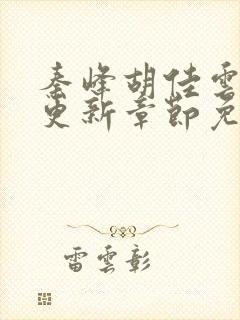 秦峰胡佳雲
更新章節免
雷雲彰